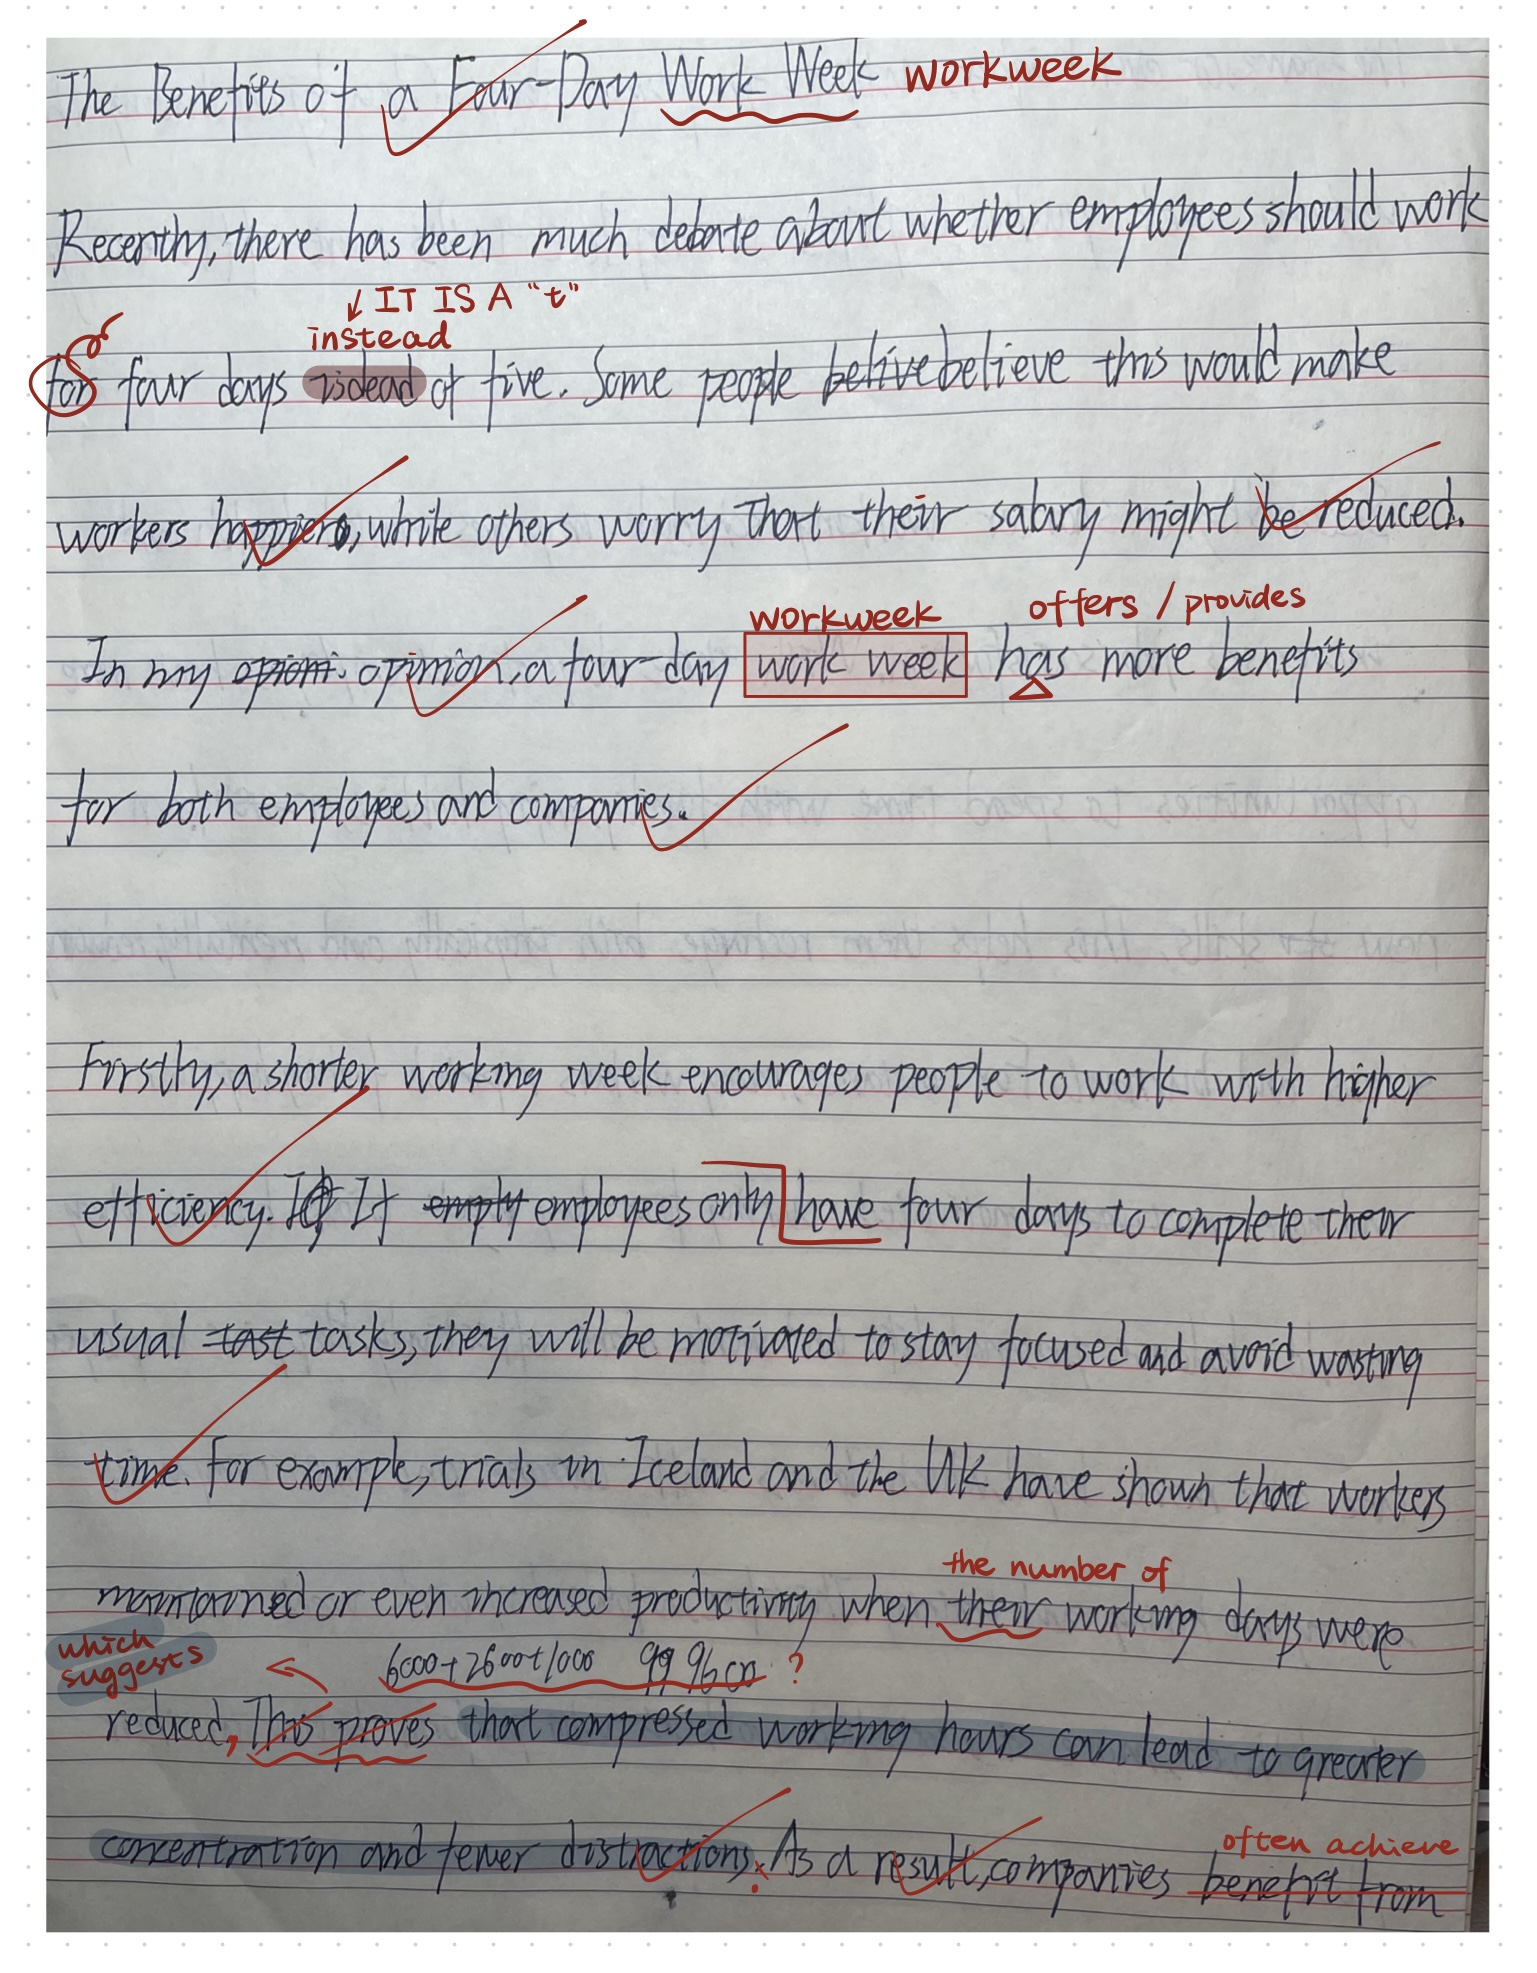 The Benefits of a Four-Day Work Week workweek
Recently, there has been much debate about whether employees should work
↓ IT IS A "t"
instead
for four days isdead of five. Some people belive believe this would make
workers happier, while others worry that their salary might be reduced.
workweek offers / provides
In my opioni. opinion, a four-day work week has more benefits
for both employees and companies.
Firstly, a shorter working week encourages people to work with higher
efficiency. If If emply employees only have four days to complete their
usual tast tasks, they will be motivated to stay focused and avoid wasting
time. For example, trials in Iceland and the UK have shown that workers
the number of
maintained or even increased productivity when their working days were
which
suggests
6000+2600+1000 99 9600 ?
reduced, This proves that compressed working hours can lead to greater
often achieve
concentration and fewer distractions. As a result, companies benefit from